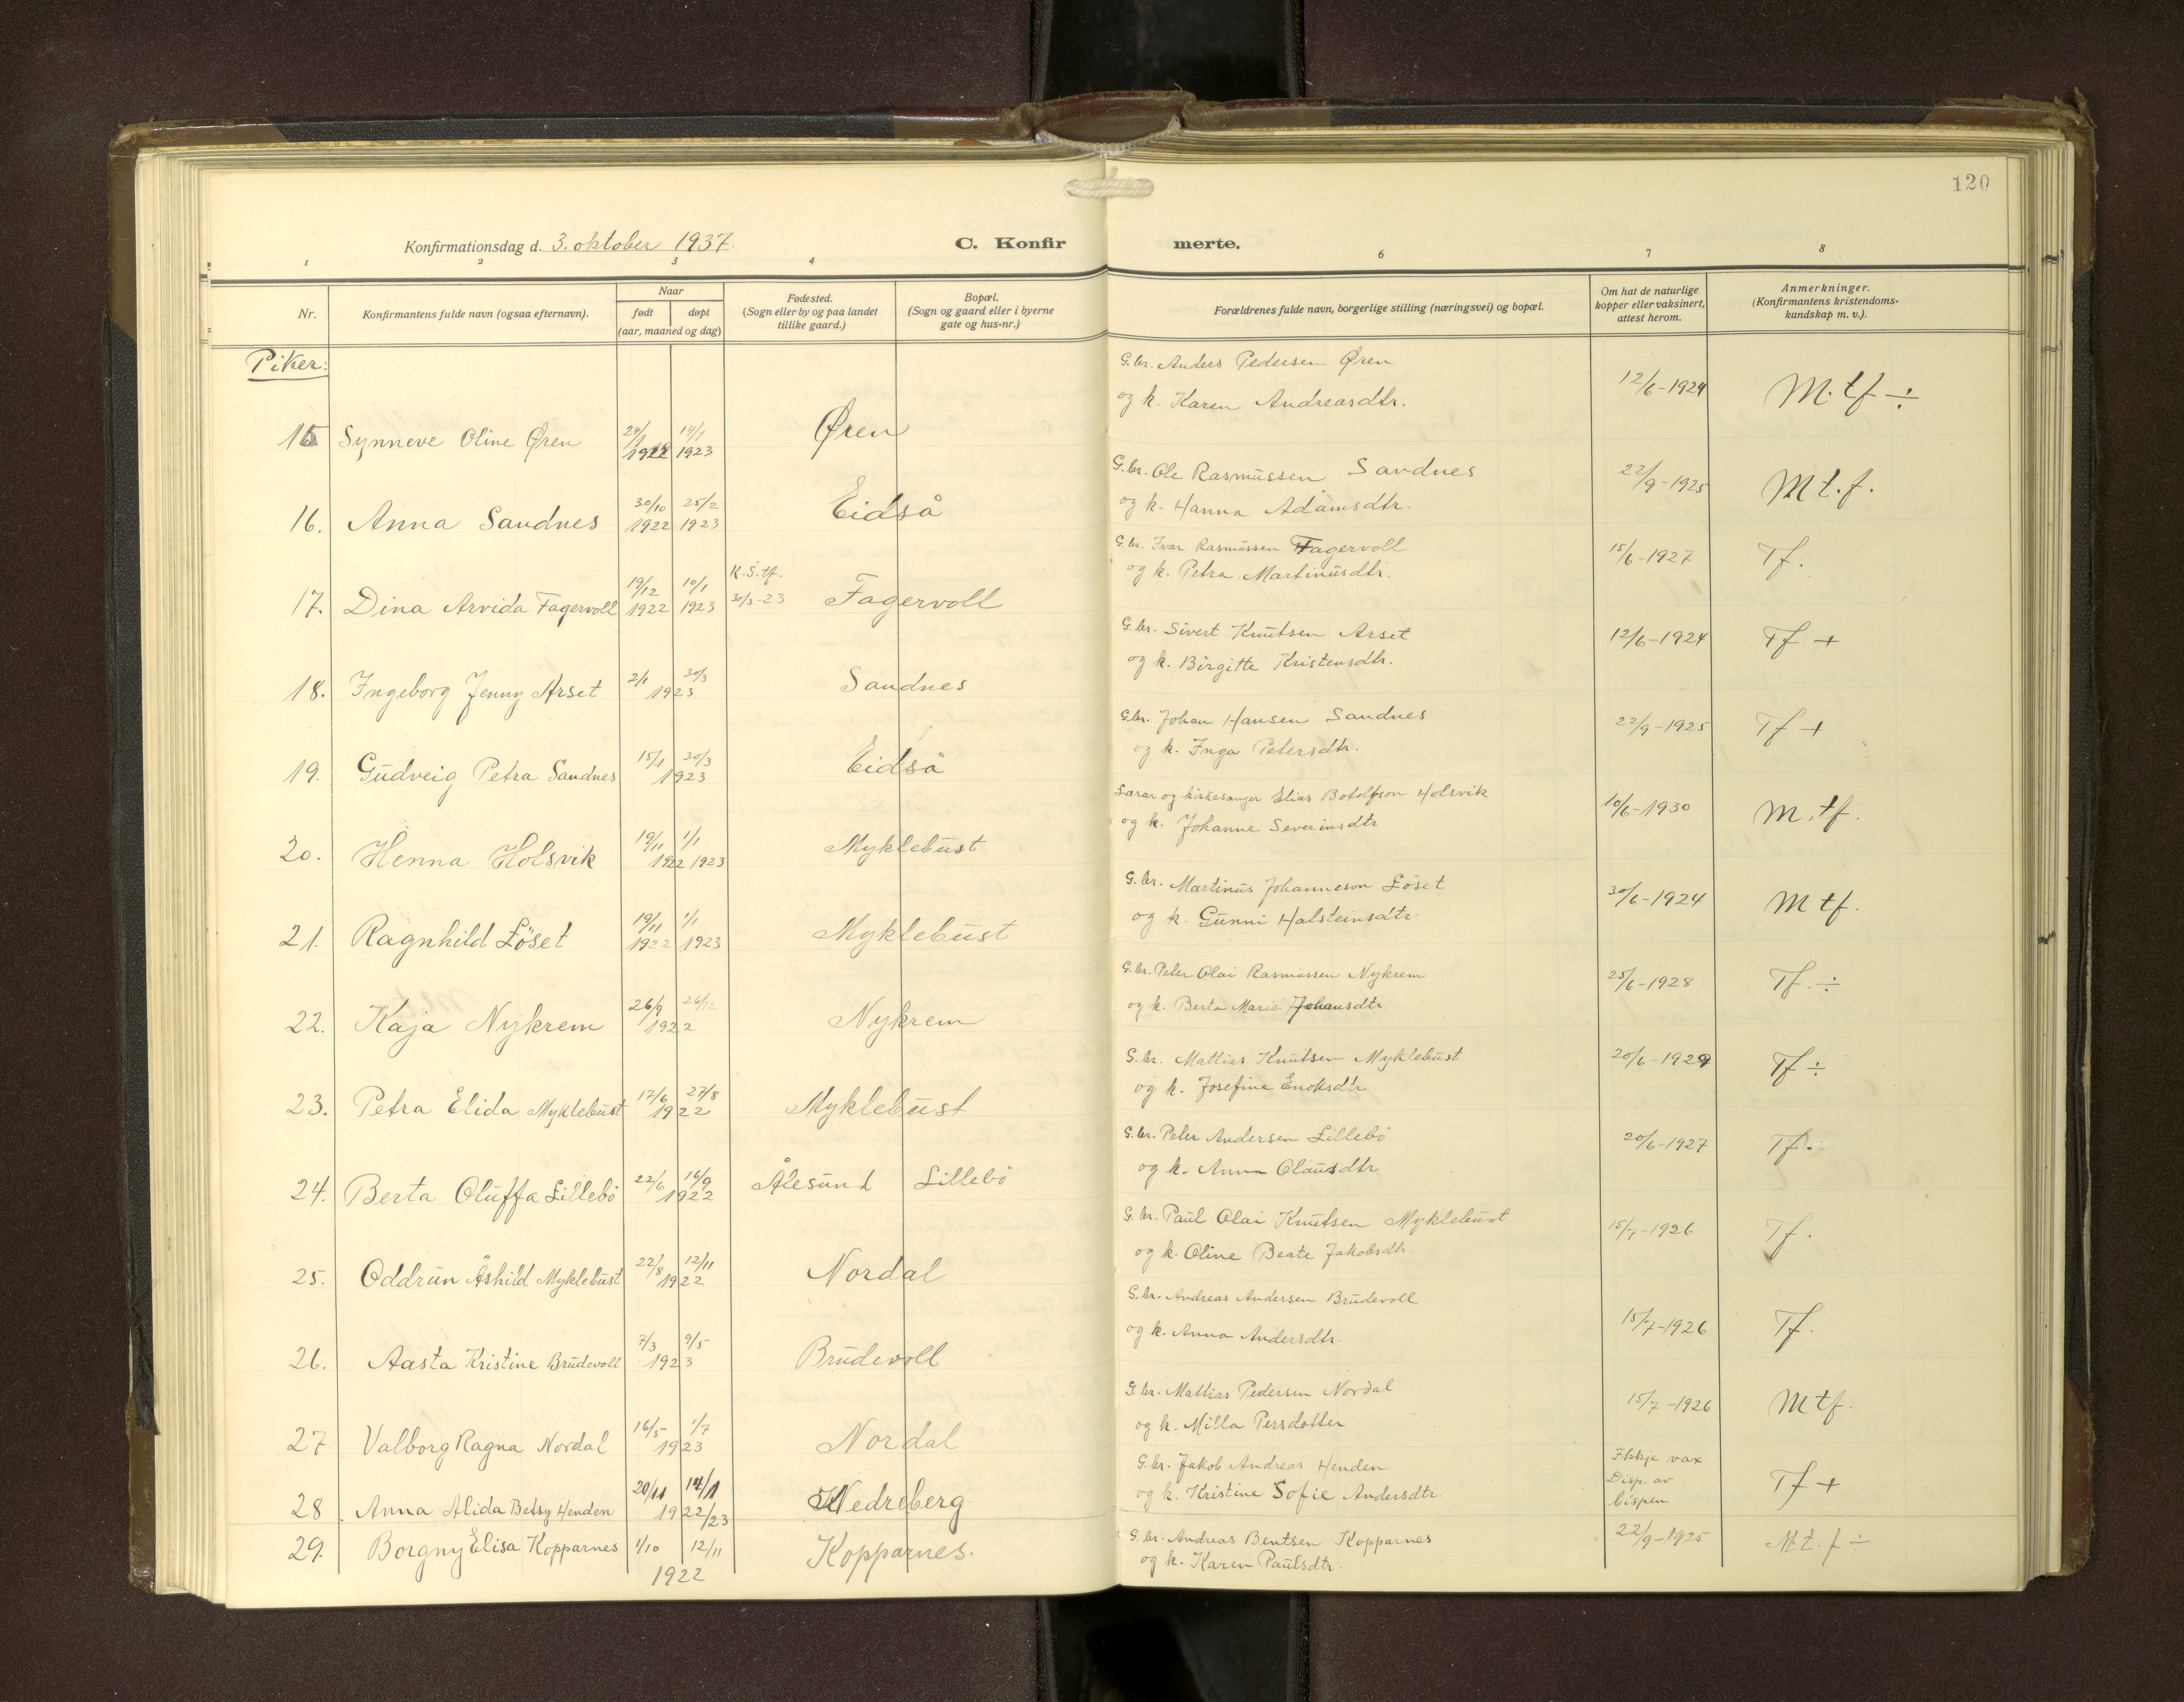 120
Konfirmationsdag d. 3. oktober 1937.
C. Konfirmerte.
1 2 3 4 6 7 8
Nr.
Konfirmantens fulde navn (ogsaa efternavn).
Naar
født døpt
(aar, maaned og dag)
Fødested.
(Sogn eller by og paa landet
tillike gaard.)
Bopæl.
(Sogn og gaard eller i byerne
gate og hus-nr.)
Forældrenes fulde navn, borgerlige stilling (næringsvei) og bopæl.
Om hat de naturlige
kopper eller vaksinert,
attest herom.
Anmerkninger.
(Konfirmantens kristendoms-
kundskap m. v.).
Piker:
G.br. Anders Pedersen Øren
og k. Karen Andreasdtr.
12/6-1924 M.tf ÷
15 Synneve Oline Øren 24/1 1922 14/1 1923 Øren
G.br. Ole Rasmussen Sandnes
og k. Hanna Adamsdtr.
22/9-1925 Mt.f.
16. Anna Sandnes 30/10 1922 25/2 1923 Eidså
G.br. Ivar Rasmussen Fagervoll
og k. Petra Martinusdtr.
15/6-1927 Tf.
17. Dina Arvida Fagervoll 19/12 1922 10/1 1923 K.S.tf. 30/3-23 Fagervoll
G.br. Sivert Knutsen Arset
og k. Birgitte Kristensdtr.
12/6-1924 Tf +
18. Ingeborg Jenny Arset 2/1 30/3 1923 Sandnes
G.br. Johan Hansen Sandnes
og k. Inga Petersdtr.
22/9-1925 Tf +
19. Gudveig Petra Sandnes 15/1 30/3 1923 Eidså
Lærar og kirkesanger Elias Botolfson Holsvik
og k. Johanne Severinsdtr
10/6-1930 M.tf.
20. Henna Holsvik 19/11 1922 1/1 1923 Myklebust
G.br. Martinus Johanneson Löset
og k. Gunni Halsteinsdtr.
30/6-1924 M tf.
21. Ragnhild Löset 19/11 1922 1/1 1923 Myklebust
G.br. Peter Olai Rasmussen Nykrem
og k. Berta Marie Johansdtr
25/6-1928 Tf. ÷
22. Kaja Nykrem 26/9 26/12 1922 Nykrem
G.br. Mattias Knutsen Myklebust
og k. Josefine Enoksdtr
20/6-1929 Tf ÷
23. Petra Elida Myklebust 17/6 27/8 1922 Myklebust
G.br. Peter Andersen Lillebö
og k. Anna Olausdtr
20/6-1927 Tf.
24. Berta Oluffa Lillebö 22/6 16/9 1922 Ålesund Lillebö
G.br. Paul Olai Knutsen Myklebust
og k. Oline Beate Jakobsdtr.
15/7-1926 Tf.
25. Oddrun Åshild Myklebust 22/8 12/11 1922 Nordal
G.br. Andreas Andersen Brudevoll
og k. Anna Andersdtr.
15/7-1926 Tf.
26. Aasta Kristine Brudevoll 7/3 9/5 1923 Brudevoll
G.br. Mattias Pedersen Nordal
og k. Milla Persdotter
15/7-1926 M tf.
27. Valborg Ragna Nordal 16/5 1/7 1923 Nordal
G.br. Jakob Andreas Henden
og k. Kristine Sofie Andersdtr.
Ikkje vax
Disp. av
bispen
Tf +
28 Anna Alida Betsy Henden 20/11 14/1 1922/23 Nedreberg
G.br. Andreas Bentsen Kopparnes
og k. Karen Paulsdtr.
22/9-1925 Mt.f ÷
29. Borgny Elisa Kopparnes 1/10 12/11 1922 Kopparnes.